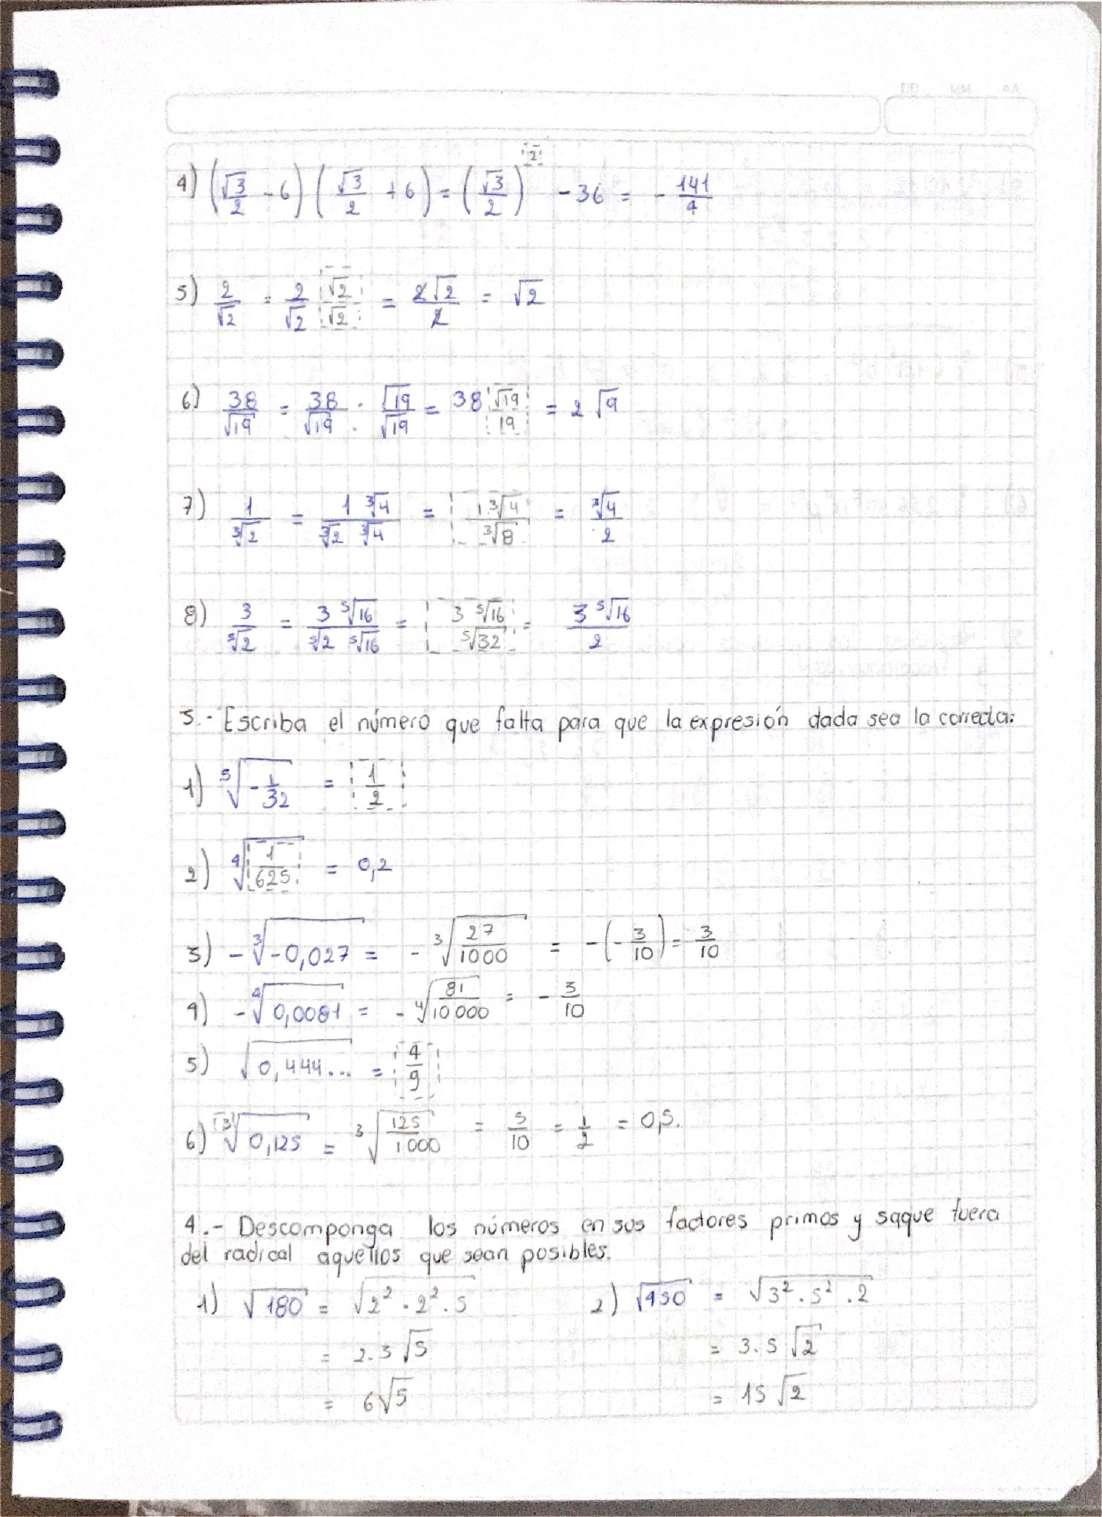 DD MM AA
4) (√3/2 - 6) (√3/2 + 6) = (√3/2)² - 36 = - 141/4
5) 2/√2 = 2/√2 √2/√2 = 2√2/2 = √2
6) 38/√19 = 38/√19 · √19/√19 = 38 √19/19 = 2 √9
7) 1/∛2 = 1 ∛4/∛2 ∛4 = 1∛4/∛8 = ∛4/2
8) 3/⁵√2 = 3 ⁵√16/⁵√2 ⁵√16 = 3 ⁵√16/⁵√32 = 3 ⁵√16/2
3.- Escriba el número que falta para que la expresión dada sea la correcta:
1) ⁵√(-1/32) = 1/2
2) ⁴√(1/625) = 0,2
3) - ∛(-0,027) = - ∛(27/1000) = -(-3/10) = 3/10
4) - ⁴√(0,0081) = - ⁴√(81/10000) = - 3/10
5) √(0,444...) = 4/9
6) ∛(0,125) = ∛(125/1000) = 5/10 = 1/2 = 0,5.
4.- Descomponga los números en sus factores primos y saque fuera
del radical aquellos que sean posibles.
1) √180 = √(2² · 2² · 5) 2) √450 = √(3² · 5² · 2)
= 2.3 √5 = 3.5 √2
= 6√5 = 15 √2